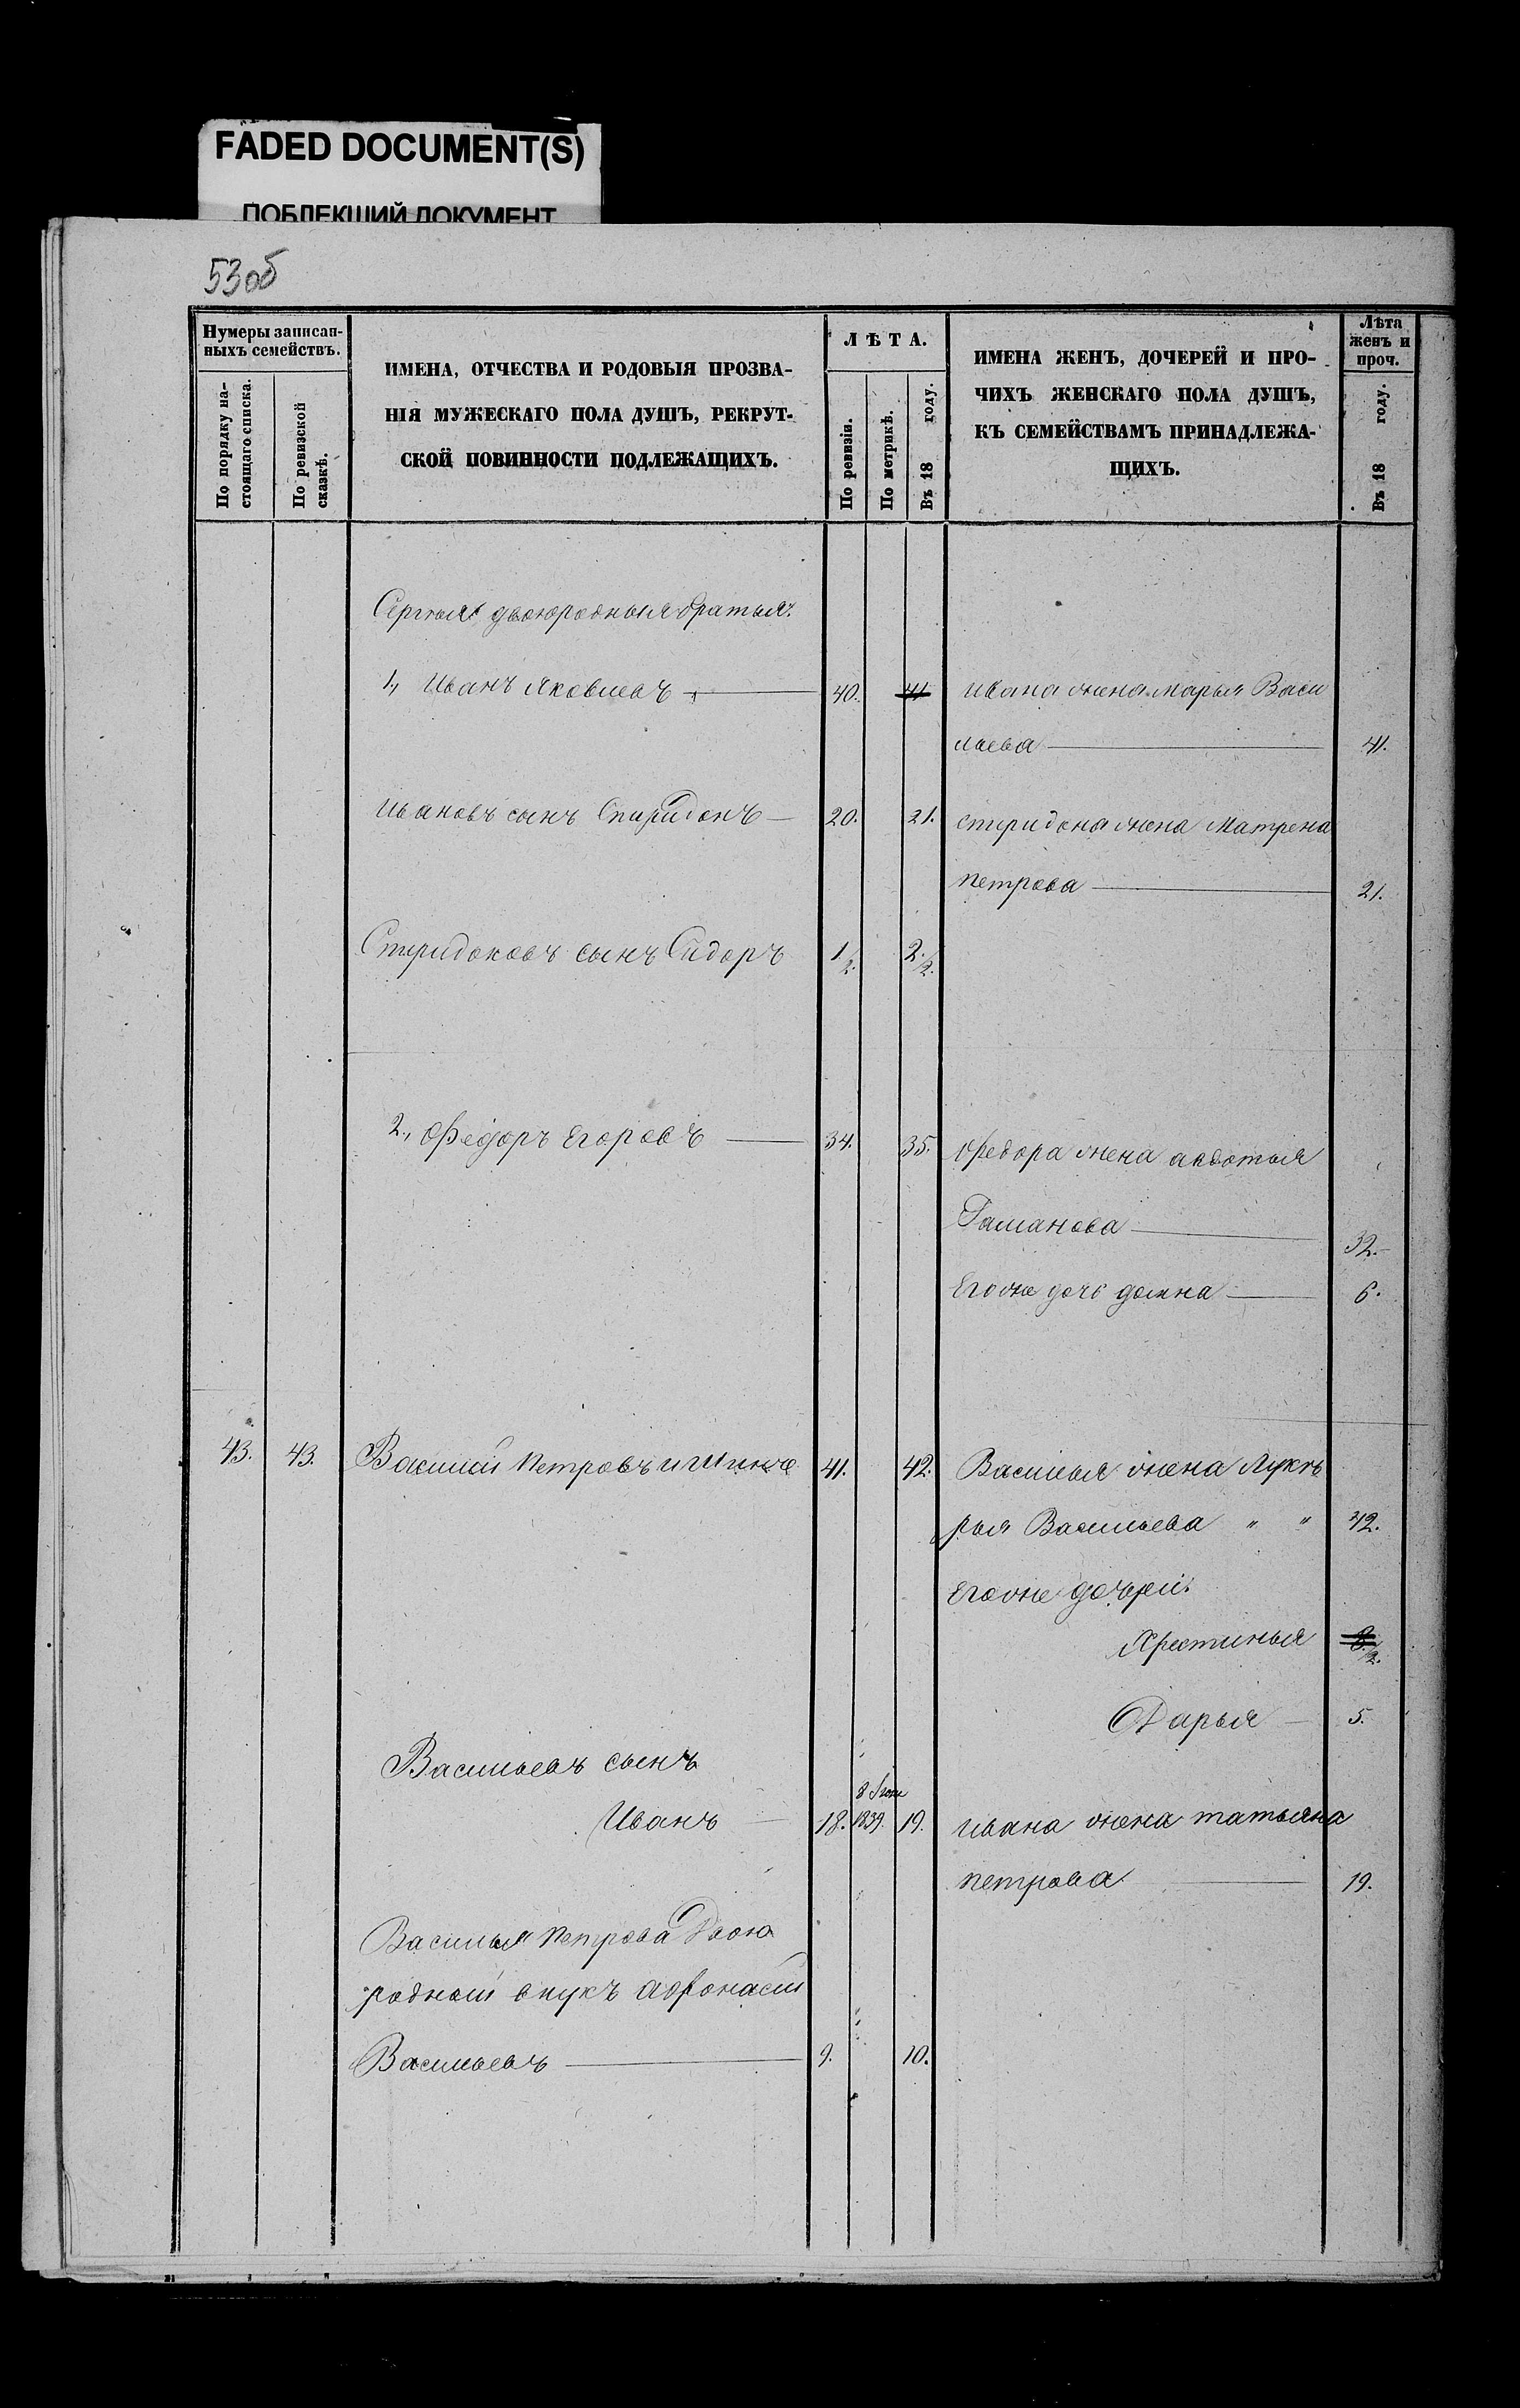 FADED DOCUMENT(S)
ПОБЛЕКШИЙ ДОКУМЕНТ
53об
Нумеры записан-
ныхъ семействъ.
По порядку на-
стоящаго списка.
По ревизской
сказкѣ.
ИМЕНА, ОТЧЕСТВА И РОДОВЫЯ ПРОЗВА-
НІЯ МУЖЕСКАГО ПОЛА ДУШЪ, РЕКРУТ-
СКОЙ ПОВИННОСТИ ПОДЛЕЖАЩИХЪ.
ЛѢТА.
По ревизіи.
По метрикѣ.
Въ 18 году.
ИМЕНА ЖЕНЪ, ДОЧЕРЕЙ И ПРО-
ЧИХЪ ЖЕНСКАГО ПОЛА ДУШЪ,
КЪ СЕМЕЙСТВАМЪ ПРИНАДЛЕЖА-
ЩИХЪ.
Лѣта
женъ и
проч.
Въ 18 году.
Сергѣя двоюродныя братья.
1, Иванъ Яковлевъ 40. 41 Ивана жена марья Васи
льева 41.
Ивановъ сынъ Спиридонъ 20. 21. спиридона жена Матрена
петрова 21.
Спиридоновъ сынъ Сидоръ 1/2. 2./2.
2., Федоръ Егоровъ 34. 35. Федора жена авдотья
Раманова 32.
Егоже дочь домна 6.
43. 43. Василий Петровъ 41. 42. Василья жена Лукѣ
рья Васильева " " 42.
Егоже дочери.
Хрестинья 8./2.
Дарья 5.
Васильевъ сынъ
Иванъ 18. 1839. 19. ивана жена татьяна
петрова 19.
Василья Петрова Двою
родной внукъ Афонасий
Васильевъ 9. 10.